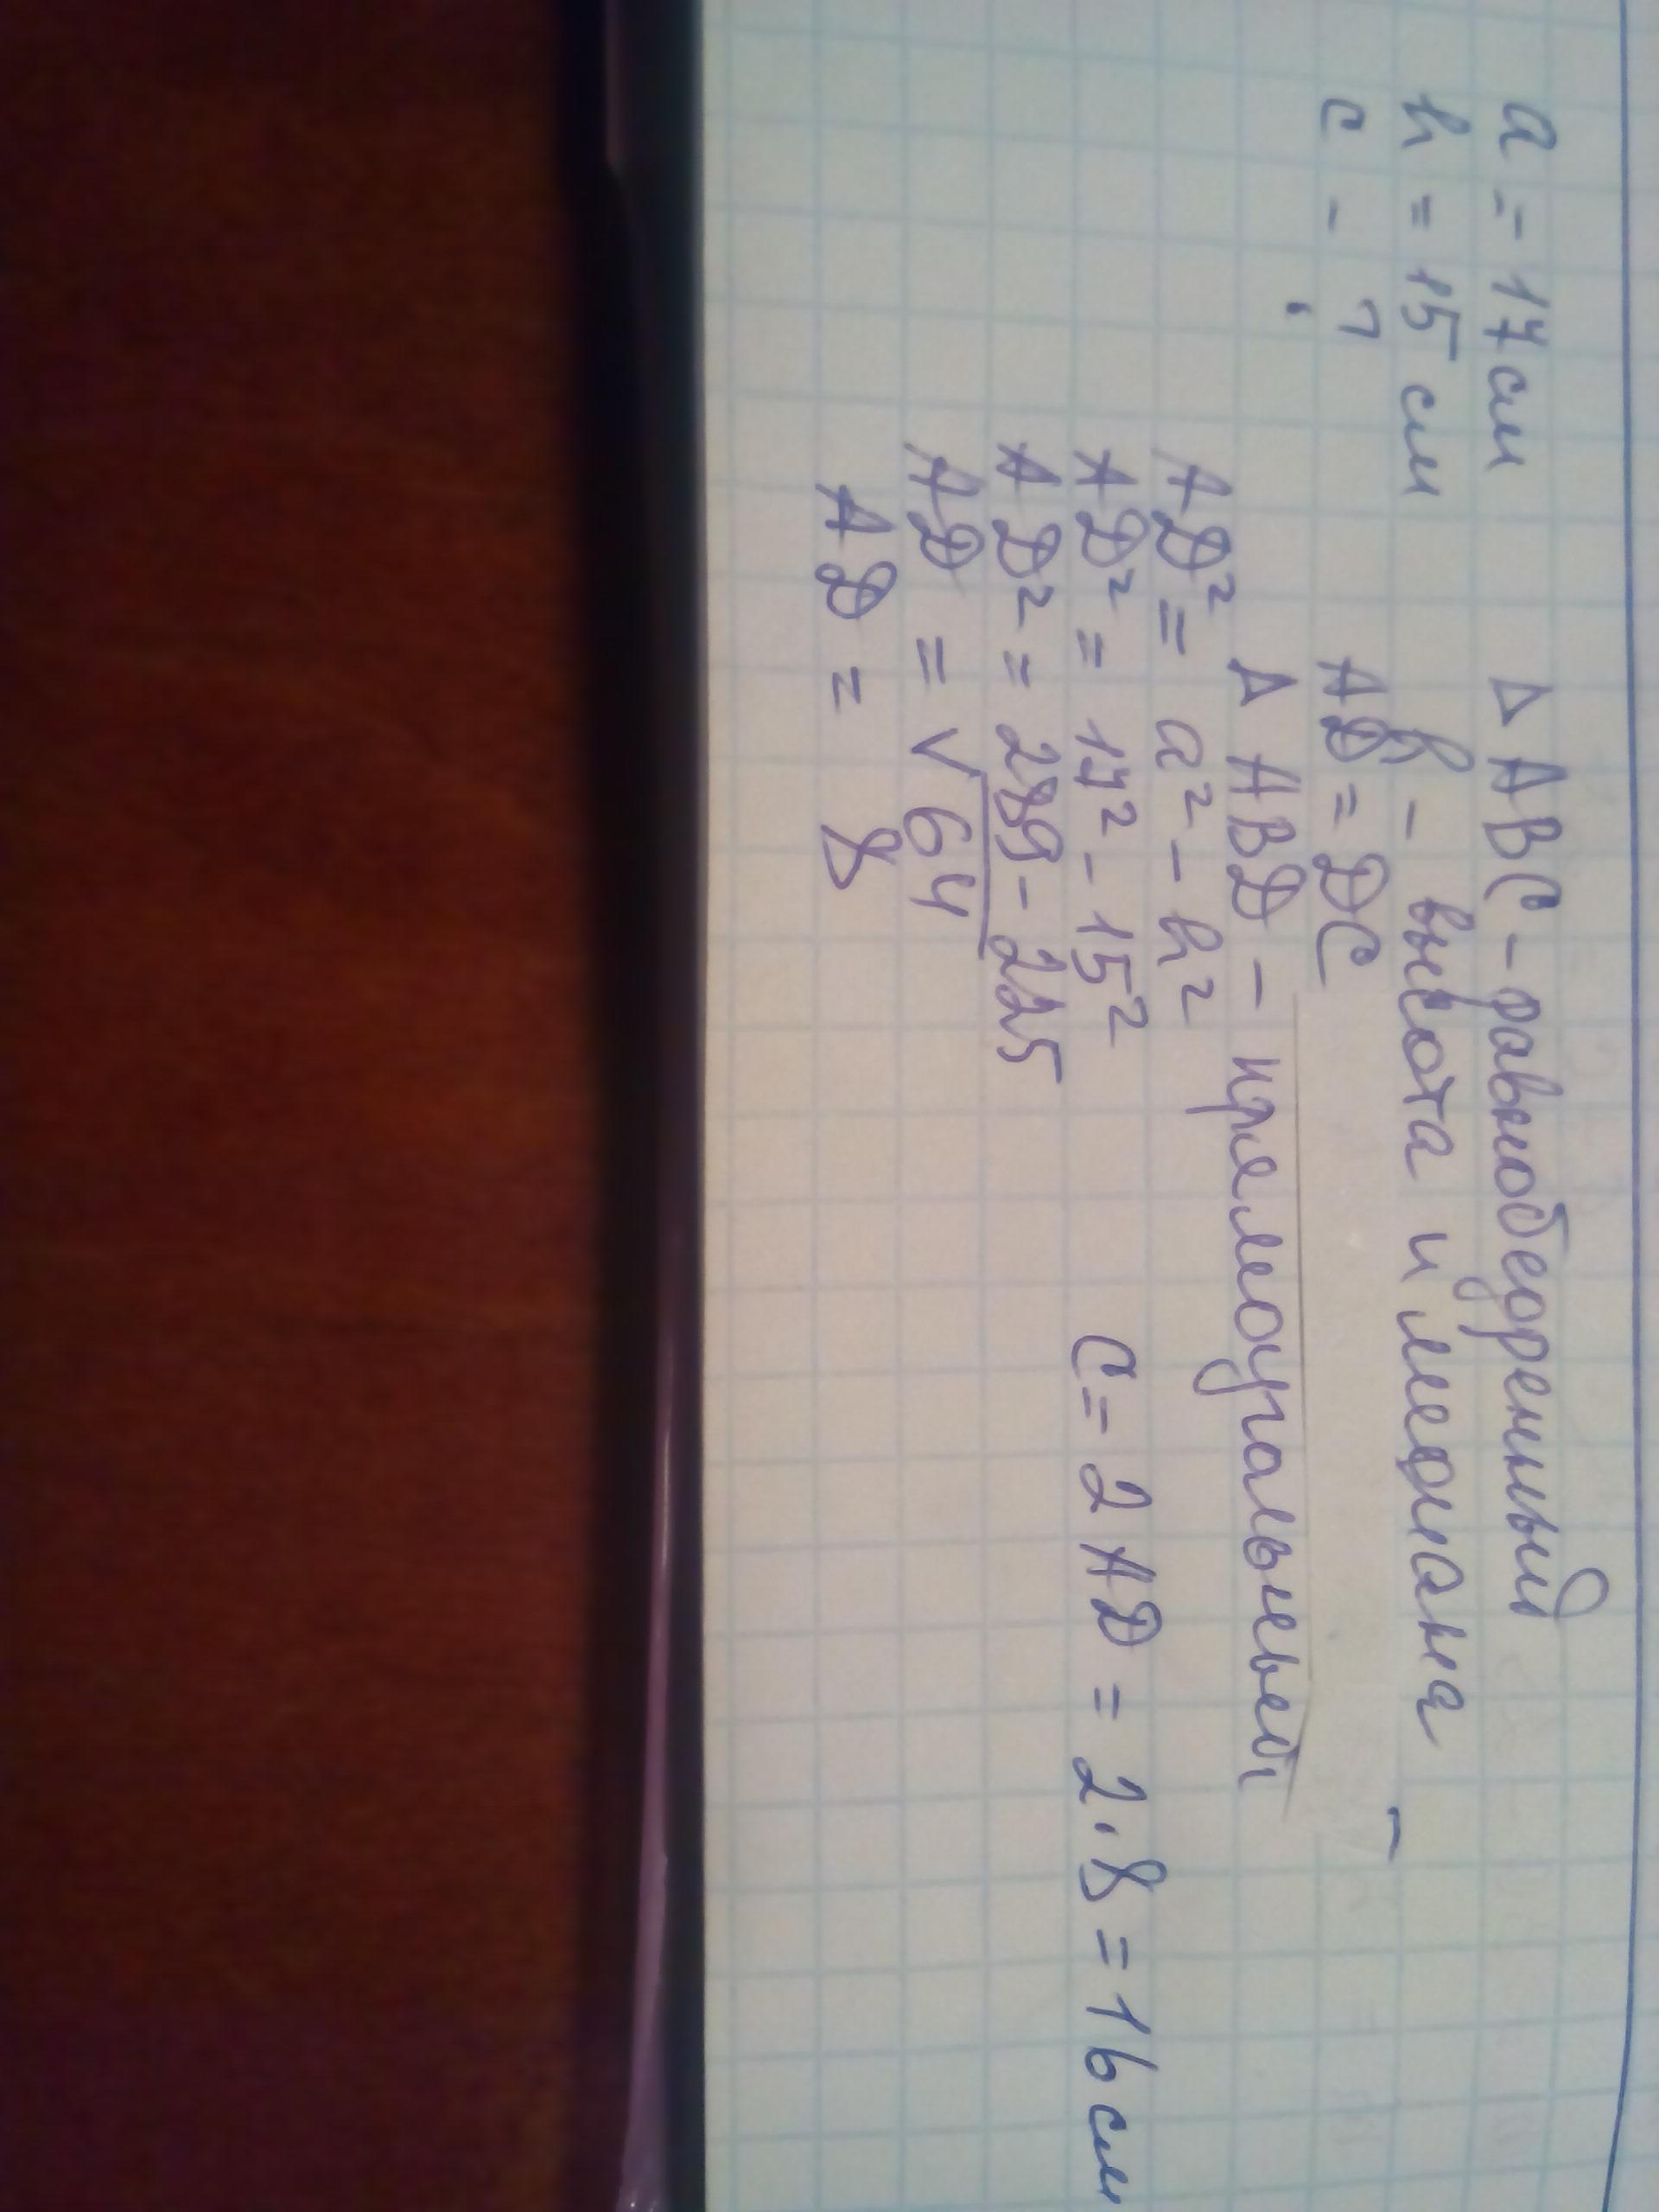 a = 17см
h = 15 см
c - ?
Δ ABC - равнобедренный
h - высота и медиана
AD = DC
Δ ABD - прямоугольный
AD² = a² - h²
AD² = 17² - 15²
AD² = 289 - 225
AD = √64
AD = 8
C = 2 AD = 2 · 8 = 16 см